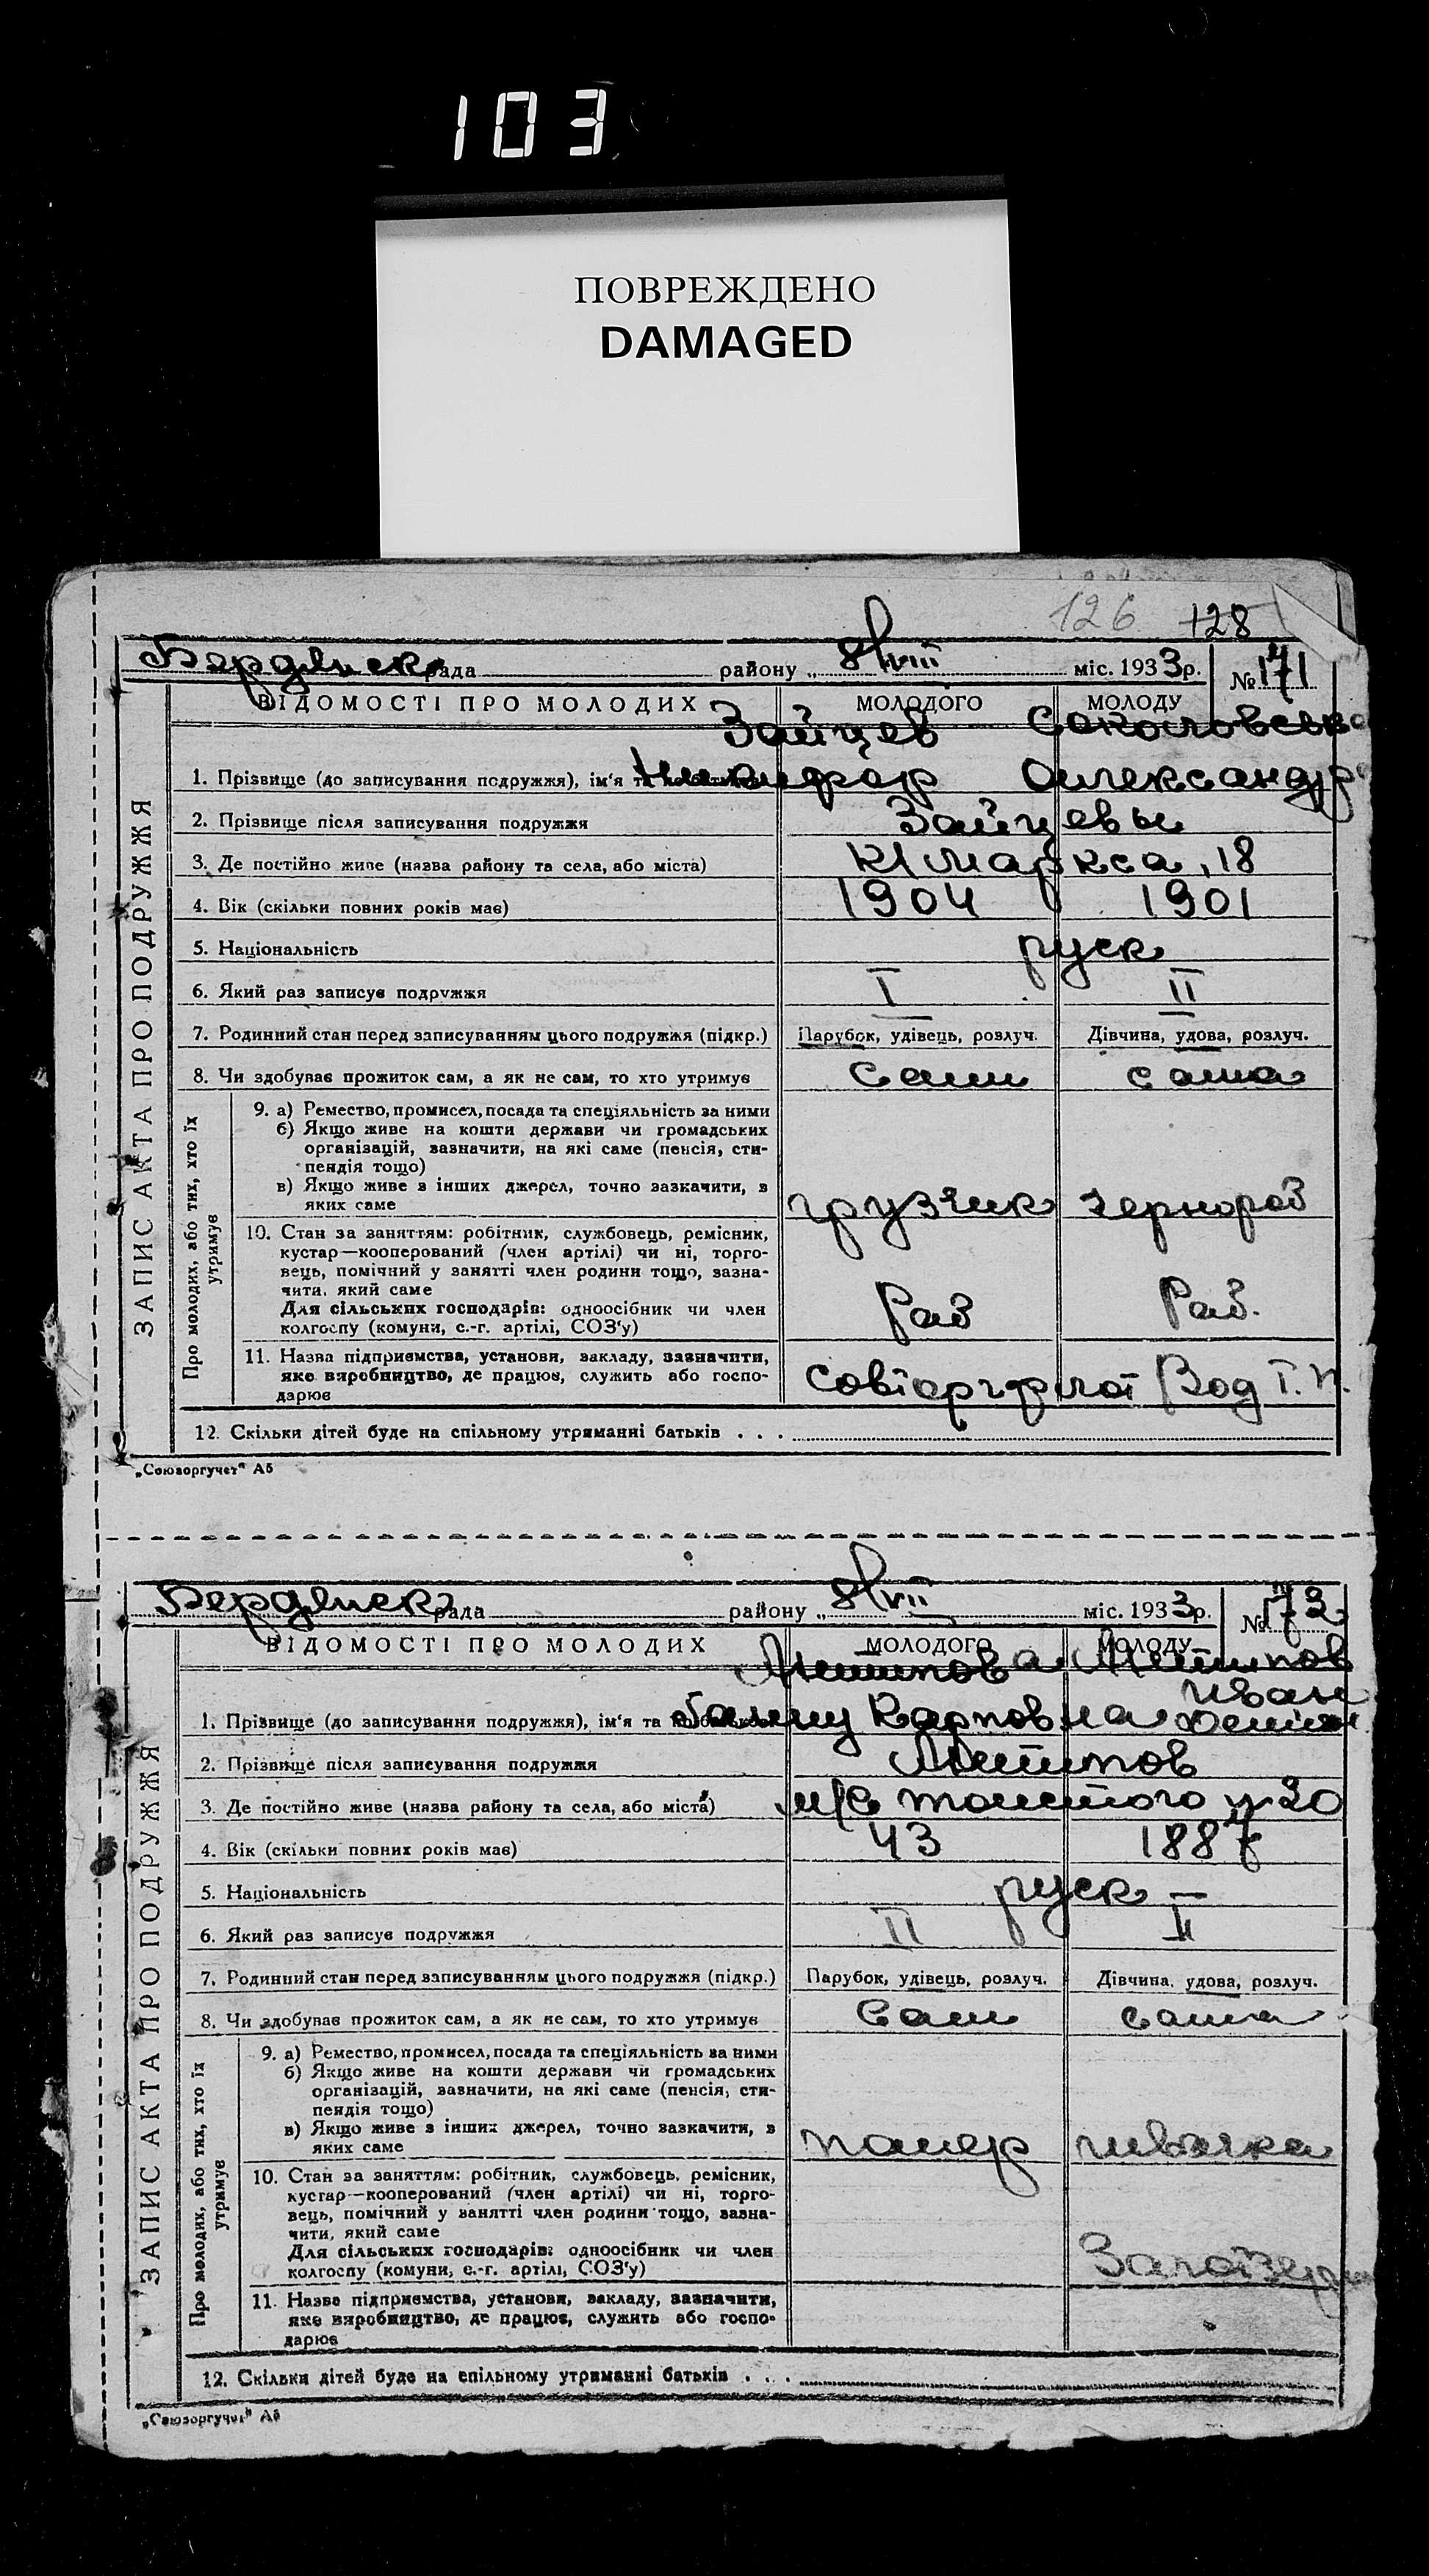 103
ПОВРЕЖДЕНО
DAMAGED
126 128
Бердянска рада району „ 8/VIII міс. 1933 р. № 171
ВІДОМОСТІ ПРО МОЛОДИХ МОЛОДОГО МОЛОДУ
Зайцев
1. Прізвище (до записування подружжя), ім'я та Никифор Олександр
2. Прізвище після записування подружжя Зайцевы
3. Де постійно живе (назва району та села, або міста) К Маркса, 18
4. Вік (скільки повних років має) 1904 1901
5. Національність руск
6. Який раз записує подружжя I II
7. Родинний стан перед записуванням цього подружжя (підкр.) Парубок, удівець, розлуч. Дівчина, удова, розлуч.
8. Чи здобуває прожиток сам, а як не сам, то хто утримує Сам сама
ЗАПИС АКТА ПРО ПОДРУЖЖЯ
Про молодих, або тих, хто їх утримує
9. а) Ремество, промисел, посада та спеціяльність за ними
б) Якщо живе на кошти держави чи громадських
організацій, зазначити, на які саме (пенсія, сти-
пендія тощо)
в) Якщо живе з інших джерел, точно зазкачити, з
яких саме грузчик чернороб
10. Стан за заняттям: робітник, службовець, ремісник,
кустар—кооперований (член артілі) чи ні, торго-
вець, помічний у занятті член родини тощо, зазна-
чити, який саме
Для сільських господарів: одноосібник чи член
колгоспу (комуни, с.-г. артілі, СОЗ'у) Раб Раб.
11. Назва підприємства, установи, закладу, зазначити,
яке виробництво, де працює, служить або госпо-
дарює Совторгфлот Вод
12. Скільки дітей буде на спільному утриманні батьків . . .
„Союзоргучет" А5
Бердянска рада району „ 8/VIII міс. 1933 р. № 172
ВІДОМОСТІ ПРО МОЛОДИХ МОЛОДОГО МОЛОДУ
Иван
1. Прізвище (до записування подружжя), ім'я та Карповна
2. Прізвище після записування подружжя
3. Де постійно живе (назва району та села, або міста) толстого 20
4. Вік (скільки повних років має) 43 1887
5. Національність руск —
6. Який раз записує подружжя II II
7. Родинний стан перед записуванням цього подружжя (підкр.) Парубок, удівець, розлуч. Дівчина, удова, розлуч.
8. Чи здобуває прожиток сам, а як не сам, то хто утримує Сам сама
ЗАПИС АКТА ПРО ПОДРУЖЖЯ
Про молодих, або тих, хто їх утримує
9. а) Ремество, промисел, посада та спеціяльність за ними
б) Якщо живе на кошти держави чи громадських
організацій, зазначити, на які саме (пенсія, сти-
пендія тощо)
в) Якщо живе з інших джерел, точно зазкачити, з
яких саме швачка
10. Стан за заняттям: робітник, службовець, ремісник,
кустар—кооперований (член артілі) чи ні, торго-
вець, помічний у занятті член родини тощо, зазна-
чити, який саме
Для сільських господарів: одноосібник чи член
колгоспу (комуни, с.-г. артілі, СОЗ'у)
11. Назва підприємства, установи, закладу, зазначити,
яке виробництво, де працює, служить або госпо-
дарює
12. Скільки дітей буде на спільному утриманні батьків . . .
„Союзоргучет" А5